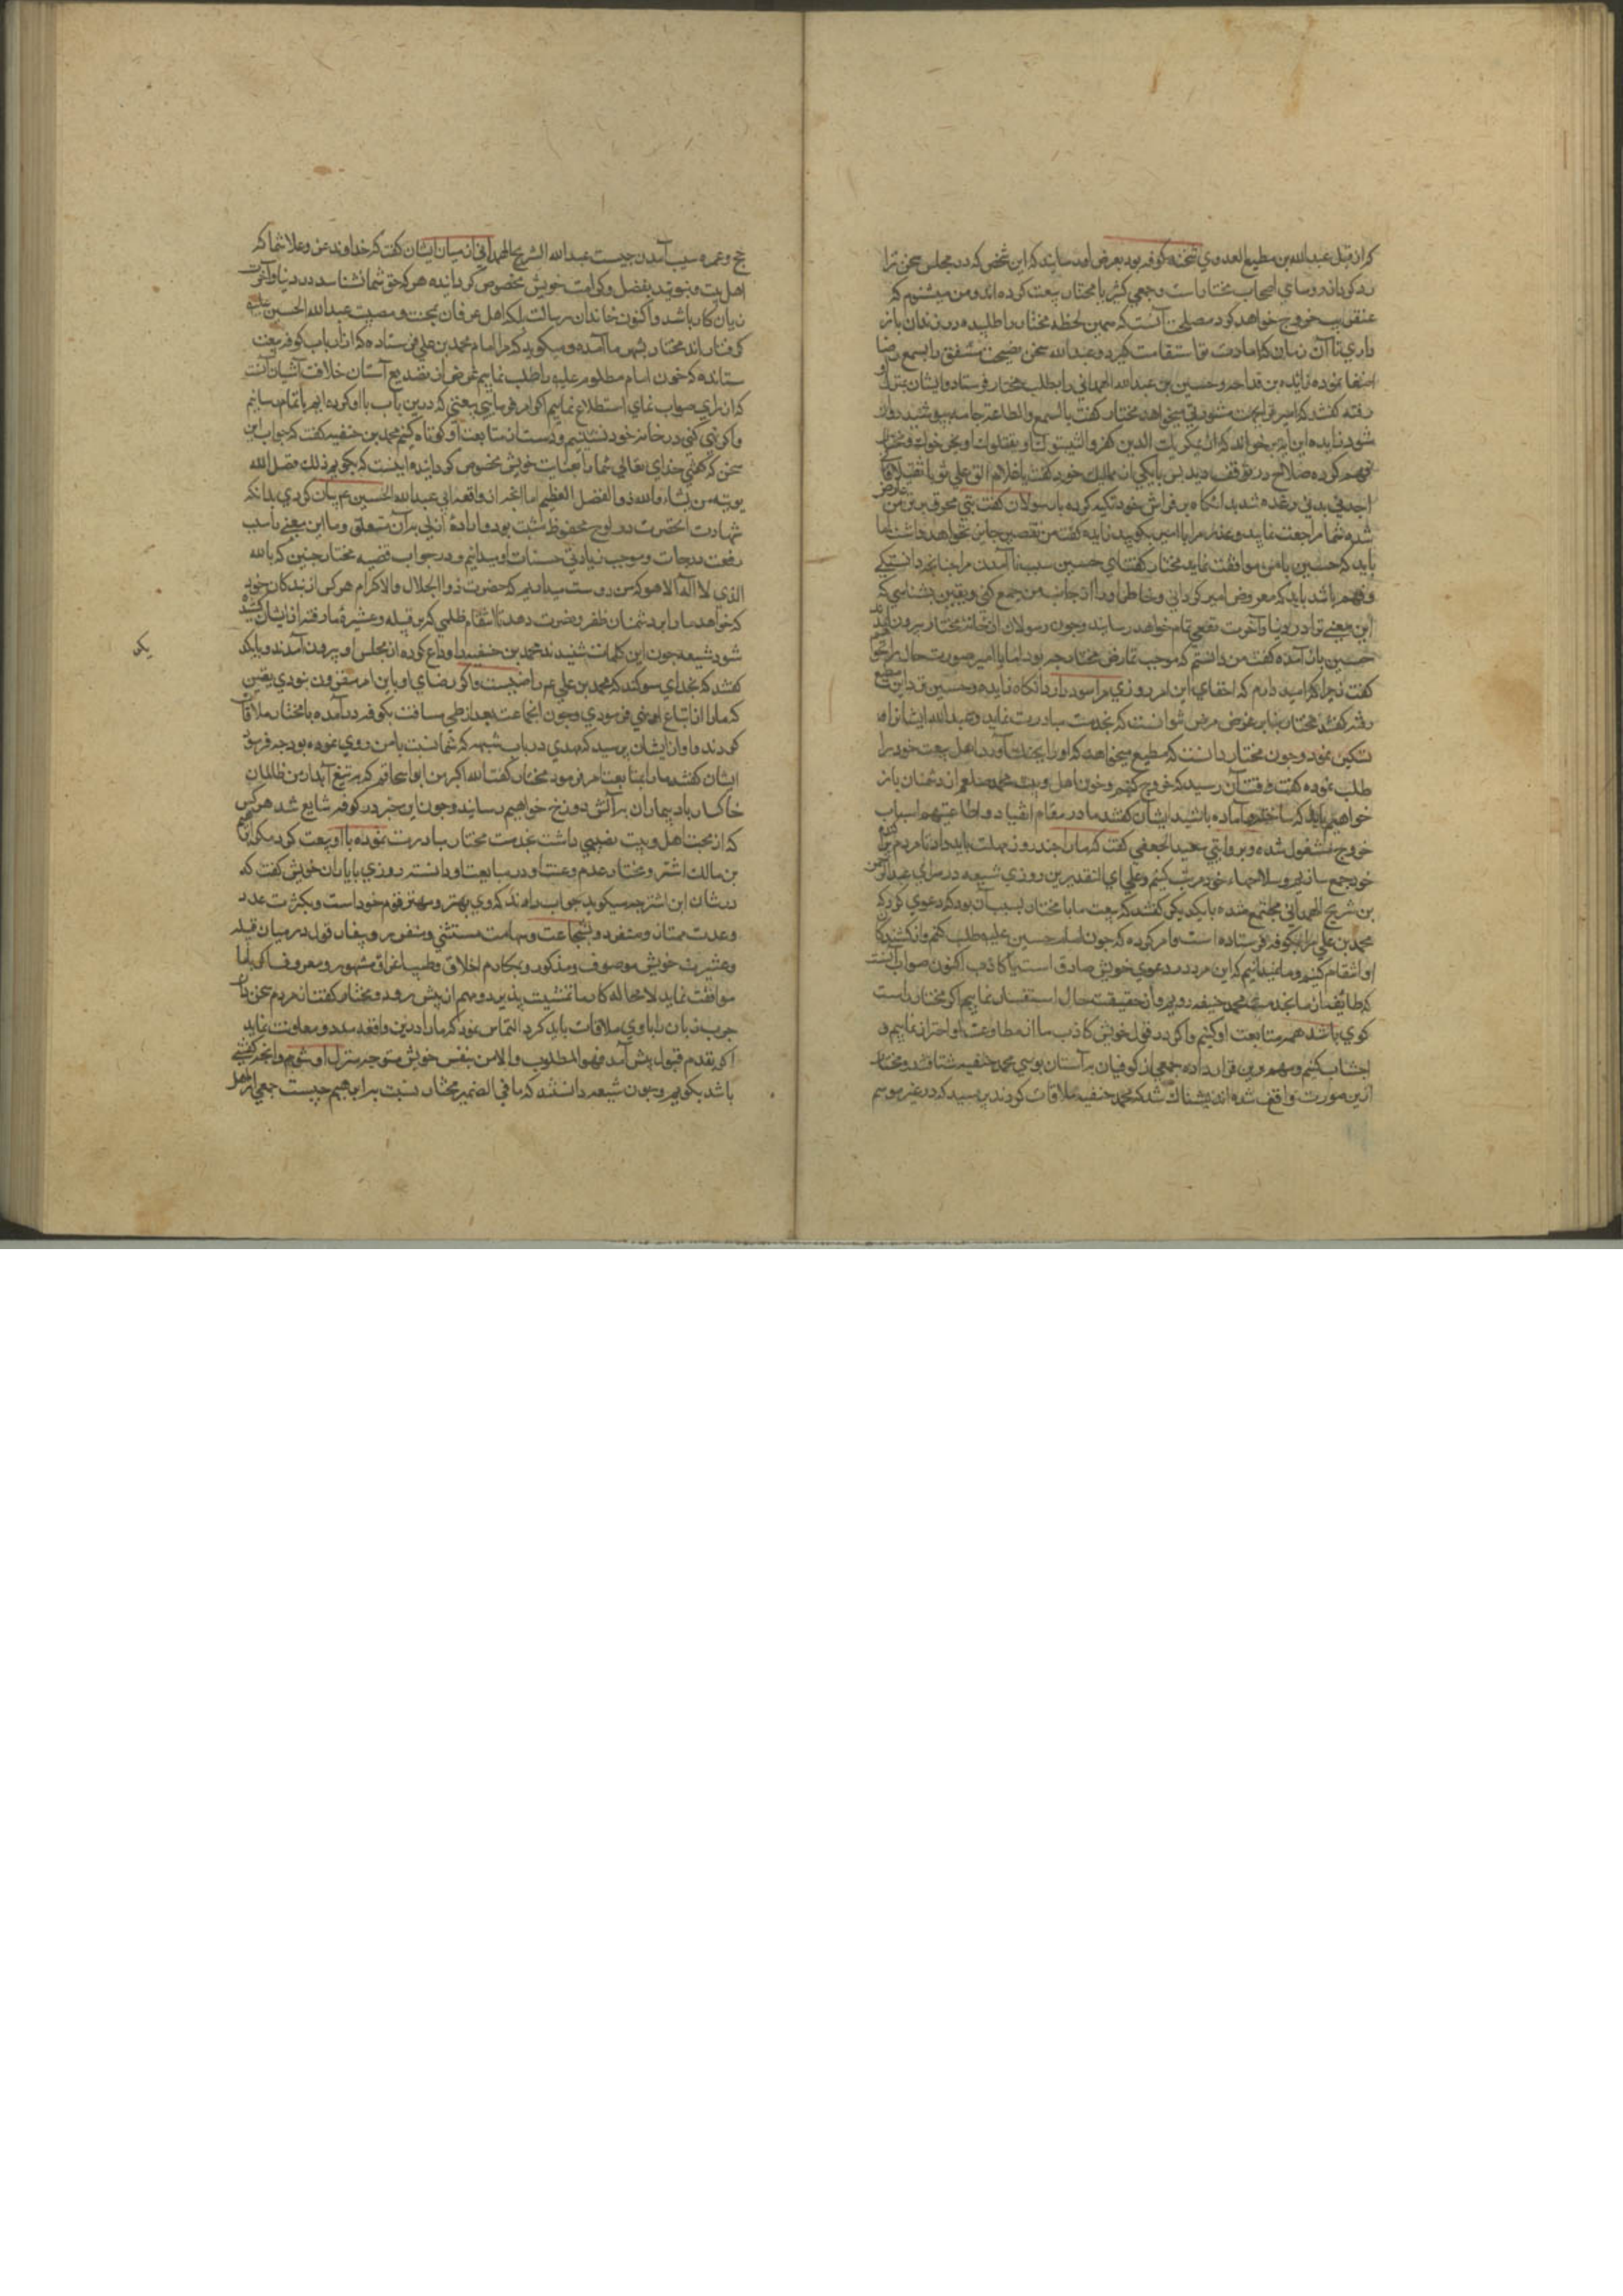 که از قبل عبدالله بن مطیع العدوي شحنه کوفه بود بعرض او رسانید که این شخص که در مجلس سخن ترا
رد کرد از روسای اصحاب مختار است و جمعی کثیر با مختار بیعت کرده اند و من میشنوم که
عنقریب خروج خواهد کرد مصلحت آنست که همین لحظه مختار را طلبیده در زندان باز
داری تا آن زمان که امارت تو استقامت گیرد و عبدالله سخن نصیحت مشفق را بسمع رضا
اصغا نموده زائده بن قدامه و حسین بن عبدالله الهمدانی را بطلب مختار فرستاد و ایشان بمنزل او
رفته گفتند که امیر بجهت مشورتی میخواهد مختار گفت بالسمع والطاعة جامه پوشید روان
شود زایده این آیه برخواند که اذ یمکر بک الذین کفروا لیثبتوک او یقتلوک او یخرجوک و مختار
فهم کرده صلاح در توقف دید پس با یکی از ممالیک خود گفت یا غلام الق علی ثوبا ثقیلا فانی
اجد في بدني رعدة شدیدة آنگاه بر فراش خود تکیه کرده با رسولان گفت تبی محرق بر من عارض
شده شما مراجعت نمایید و عذر مرا با امیر بگویید زایده گفت من تقصیر جایز نخواهم داشت اما
باید که حسین با من موافقت نماید مختار گفت ای حسین سبب نا آمدن مرا چنانچه دانستی
و فهم باشد باید که معروض امیر گردانی و خاطر او را از جانب من جمع کنی و یقین بشناسی که
این معنی ترا در دنیا و آخرت نفعی تمام خواهد رسانید و چون رسولان از خانه مختار بیرون آمدند
حسین با زایده گفت من دانستم که موجب تمارض مختار چه بود اما با امیر صورت حال را نخواهم
گفت زیرا که امید دارم که اخفای این امر روزی مرا سود دارد آنگاه زایده و حسین نزد ابن مطیع
رفته گفتند مختار بنابر عروض مرض نتوانست که بخدمت مبادرت نماید و عبدالله ایشانرا
تمکین نمود و چون مختار دانست که مطیع میخواهد که او را بچنگ آورد اهل بیعت خود را
طلب نموده گفت وقت آن رسید که خروج کنیم و خون اهل بیت محمد صلعم از دشمنان باز
خواهیم باید که ساخته و آماده باشید ایشان گفتند ما در مقام انقیاد و اطاعتیم اسباب
خروج مشغول شده و بروایتی سعید الجعفی گفت که ما را چند روز مهلت باید داد تا مردم
خود جمع سازیم و سلاحهاء خود مرتب کنیم و علی ای التقدیرین روزی شیعه در سرای عبدالرحمن
بن شریح الهمدانی مجتمع شده با یکدیگر گفتند که بیعت ما با مختار بسبب آن بود که دعوی کرد که
محمد بن علی مرا بکوفه فرستاده است و امر کرده که خون امام حسین علیه طلب کنم و از کشندگان
او انتقام کشم و ما نمیدانیم که این مرد در دعوی خویش صادق است یا کاذب اکنون صواب آنست
که طایفه از ما بخدمت محمد حنفیه رویم و از حقیقت حال استفسار نماییم اگر مختار راست
گوی باشد همه متابعت او کنیم و اگر در قول خویش کاذب باشد از مطاوعت او احتراز نماییم و
اجتناب کنیم و هم برین قرار داده جمعی از کوفیان بر آستان بوسی محمد حنفیه شتافتند و مختار
ازین صورت واقف شده اندیشناک شد که محمد حنفیه ملاقات کردند پرسید که در غیر موسم
حج و عمره سبب آمدن چیست عبدالله الشریح الهمدانی از میان ایشان گفت که خداوند عز و علا شما که
اهل بیت نبوتید بفضل و کرامت خویش مخصوص گردانیده هر که حق شما نشناسد در دنیا و آخرت
زیان کار باشد و اکنون خاندان رسالت بلکه اهل عرفان بمحنت و مصیبت عبدالله الحسین علیه
گرفتار اند مختار بشهر ما آمده و میگوید که مرا امام محمد بن علی فرستاده که از ارباب کوفه بیعت
ستانده که خون امام مظلوم علیه را طلب نماییم غرض از تصدیع آستان خلافت آشیان آنست
که از رای صواب نمای استطلاع نماییم اگر امر فرمایی بیعتی که درین باب با او کرده ایم باتمام رسانیم
و اگر نهی کنی در خانه خود نشینیم و دست از متابعت او کوتاه کنیم محمد بن حنفیه گفت که جواب این
سخن که گفتی خدای تعالی شما را بعنایت خویش مخصوص گردانیده اینست که میگویم ذلک فضل الله
یوتیه من یشاء والله ذو الفضل العظیم اما آنچه از واقعه ابی عبدالله الحسین عم بیان کردی بدانکه
شهادت آنحضرت در لوح محفوظ مثبت بود و ارادهٔ ازلی بر آن متعلق و ما این معنی را سبب
رفعت درجات و موجب زیادتی حسنات او میدانیم و در جواب قضیه مختار چنین که بالله
الذی لا اله الا هو که من دوست میدارم که حضرت ذو الجلال والاکرام هر کس از بندگان خود
که خواهد ما را بر دشمنان ظفر و نصرت دهد تا انتقام ظلمی که بر قبیله و عشیرهٔ ما رفته از ایشان کشیده
شود شیعه چون این کلمات شنیدند محمد بن حنفیه را وداع کرده از مجلس او بیرون آمدند و با یکدیگر
گفتند که بخدای سوگند که محمد بن علی عم راضیست و اگر رضای او باین امر مقرون نبودی یقین
که ما را از اتباع او نهی فرمودی و چون آنجماعت بعد از طی مسافت بکوفه در آمده با مختار ملاقات
کردند و او از ایشان پرسید که مهدی در باب شبهه که شما نسبت با من روی نموده بود چه فرمود
ایشان گفتند ما را بمتابعت امر فرمود مختار گفت الله اکبر من ابو اسحاقم که بر تیغ آبدار من ظالمان
خاکسار باد پیما را بر آتش دوزخ خواهیم رسانید و چون این خبر در کوفه شایع شد هر کس
که از محبت اهل بیت نصیبی داشت بخدمت مختار مبادرت نموده با او بیعت کرد مگر ابراهیم
بن مالک اشتر و مختار عدم رغبت او در مبایعت او دانسته روزی با یاران خویش گفت که
در شان ابن اشتر چه میگویید جواب دادند که وی بهتر و مهتر قوم خود است و بکثرت عدد
و عدت ممتاز و منفرد و بشجاعت و شهامت مستثنی و بنفاذ قول در میان قبیله
و عشیرت خویش موصوف و مذکور و بمکارم اخلاق و طیب اعراق مشهور و معروف اگر با ما
موافقت نماید لا محاله کار ما تمشیت پذیرد و مهم از پیش رود و مختار گفت از مردم سخن دان
چرب زبان را با وی ملاقات باید کرد و التماس نمود که ما را درین واقعه مدد و معاونت نماید
اگر بقدم قبول پیش آمد فهو المطلوب و الا من بنفس خویش متوجه منزل او شوم و آنچه گفتنی
باشد بگویم و چون شیعه دانستند که ما فی الضمیر مختار نسبت بابراهیم چیست جمعی از اهل